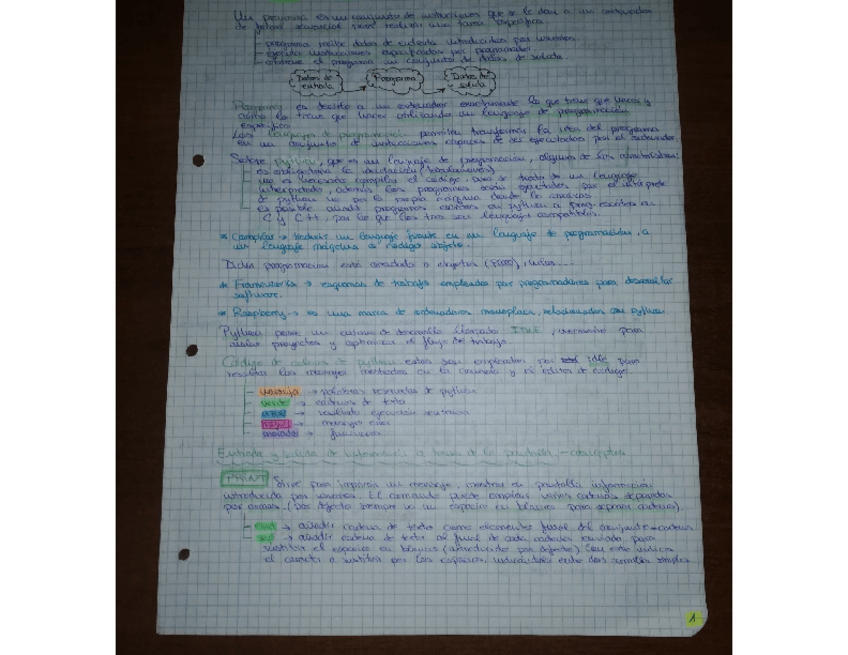 Un programa es un conjunto de instrucciones que se le dan a un ordenador
de forma secuencial para realizar una tarea específica.
programa recibe datos de entrada introducidos por usuarios.
ejecuta instrucciones especificadas por programador
obtiene el programa un conjunto de datos de salida
Datos de entrada → Programa → Datos de salida
Programar es decirle a un ordenador exactamente lo que tiene que hacer y
cómo lo tiene que hacer utilizando un lenguaje de programación
específico.
Los lenguajes de programación permiten transformar la idea del programa
en un conjunto de instrucciones capaces de ser ejecutadas por el ordenador.
Sobre python, que es un lenguaje de programación, algunas de las características:
es obligatoria la indentación (tabulaciones)
no es necesario compilar el código, que se trata de un lenguaje
interpretado, además los programas serán ejecutados por el intérprete
de python no por la propia máquina donde lo
es posible añadir programas escritos en python a prog. escritos en
C y C++, por lo que los tres son lenguajes compatibles.
* Compilar → traducir un lenguaje fuente en un lenguaje de programación, a
un lenguaje máquina o código objeto.
Dicha programación está orientada a objetos (POO),
* Frameworks → esquemas de trabajo empleados por programadores para desarrollar
software.
* Raspberry → es una marca de ordenadores monoplaca, relacionados con python.
Python posee un entorno de desarrollo llamado IDLE, necesario para
crear proyectos y optimizar el flujo de trabajo.
Código de colores de python estos son empleados por idle para
resaltar los mensajes mostrados en la consola y el editor de código.
naranja → palabras reservadas de python
verde → cadenas de texto
azul → resultado ejecución sentencia
rojo → mensajes error
morado → funciones
Entrada y salida de información a través de la pantalla - conceptos
PRINT Sirve para imprimir un mensaje, mostrar en pantalla información
introducida por usuarios. El comando puede emplear varias cadenas separadas
por comas. (por defecto siempre va un espacio en blanco para separar cadenas).
end → añadir cadena de texto como elemento final del conjunto cadenas
sep → añadir cadena de texto al final de cada cadena enviada para
sustituir el espacio en blanco (introducido por defecto). Con esto indica
el carácter a sustituir por los espacios, indicándolo entre dos comillas simples
1